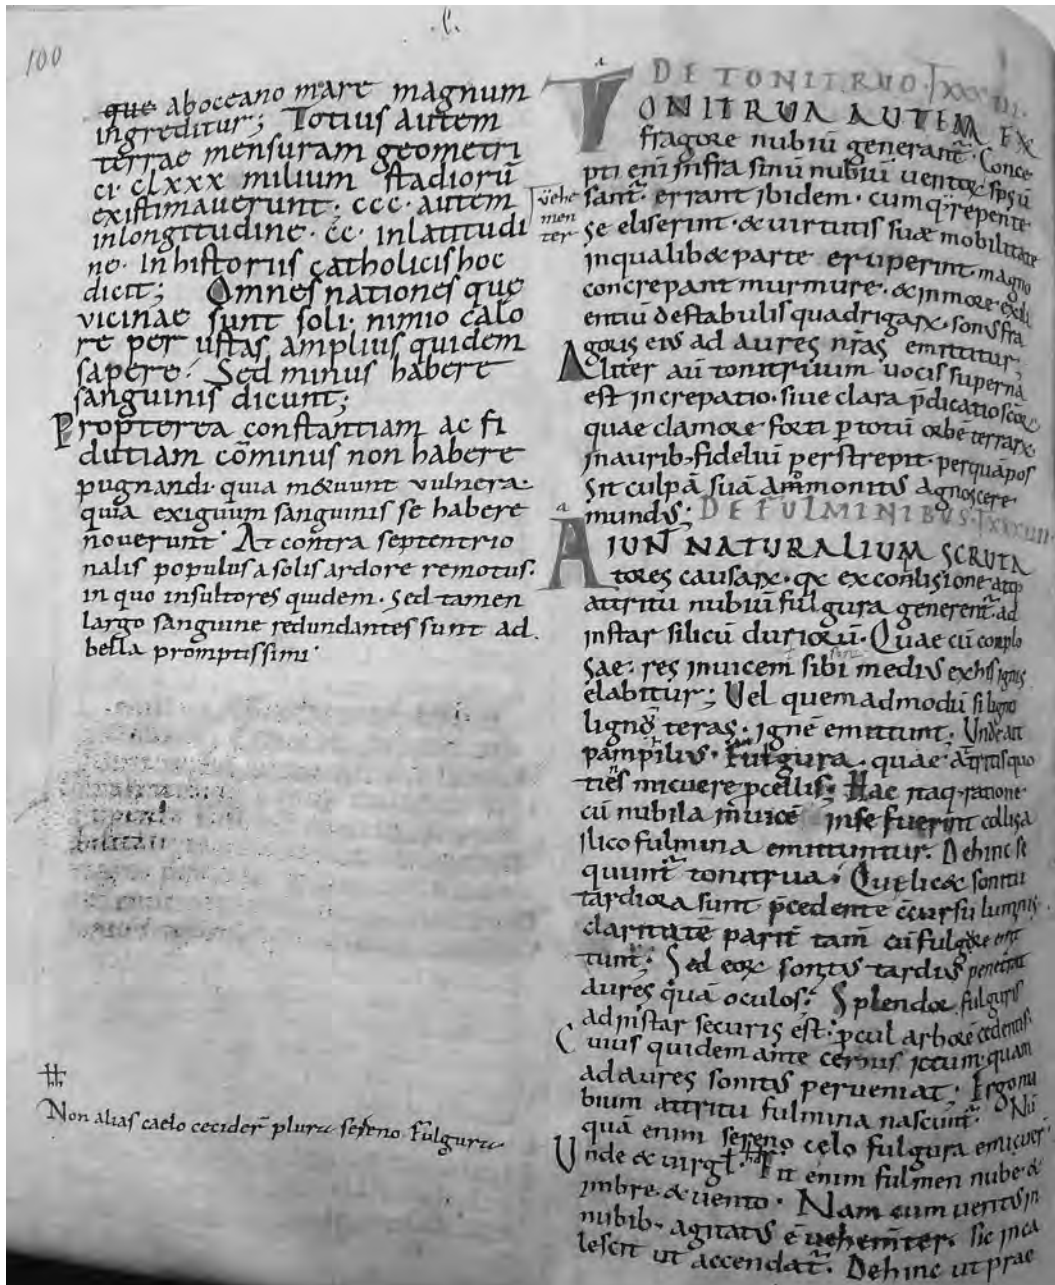 100
.C.
que aboceano mare magnum
ingreditur; Totius autem
terrae mensuram geometri
ci. clxxx milium stadiorū
existimauerunt; ccc. autem
inlongitudine. cc. inlatitudi
ne. In historiis catholicis hoc
dicit; Omnes nationes quę
vicinae sunt soli. nimio calo
re per ustas amplius quidem
sapere. Sed minus habere
sanguinis dicunt;
Propterea constantiam ac fi
dutiam cōminus non habere
pugnandi. quia m&uunt vulnera.
quia exiguum sanguinis se habere
nouerunt. At contra septentrio
nalis populus a solis ardore remotus.
in quo insultores quidem. Sed tamen
largo sanguine redundantes sunt ad
bella promptissimi.
Non alias caelo cecider̄ plura sereno fulgura
uehe
men
ter
DE TONITRUO
TONITRUA AUTEM EX
fragore nubiū generant̄. Conce
pti eni infra sinū nubiū
sant̄. errant ibidem. cumq; repente
se eliserint. & uirtutis suae mobilitate
inqualib& parte eruperint. magno
concrepant murmure. & inmore exili
entiū destabulis quadrigaꝝ. sonus fra
goris eius ad aures nr̄as emittitur;
Aliter aū tonitruum uocis superna
est increpatio. siue clara p̄dicatio scōꝝ
quae clamore forti p totū orbē terraꝝ
inaurib; fideliū perstrepit. per quā pos
sit culpā suā ammonitus agnoscere
mundus; DE FULMINIBUS.
AIUNT NATURALIUM SCRUTA
tores causaꝝ. qꝫ ex conlisione atq;
attritu nubiū fulgura generent̄. ad
instar silicū durioꝝ. Quae cū complo
sae. res inuicem sibi medius ex his ignis
elabitur; Vel quemadmodū si ligno
lignū teras. ignē emittunt. Unde ait
pampilius. Fulgura. quae attritis quo
ties micuere pcellis; Hae itaq; ratione
cū nubila inuicē inse fuerint collisa
ilico fulmina emittuntur. Dehinc se
quunt̄ tonitrua. Que lic& sonitu
tardiora sunt p̄cedente cursu luminis
claritatē parit̄ tam̄ cū fulgore emit
tunt̄; Sed eoꝝ sonitus tardius penetrat
aures quā oculos; Splendor fulguris
ad instar securis est. pcul arborē cedentis.
Cuius quidem ante cernis ictum. quam
ad aures sonitus perueniat; Ergo nu
bium attritu fulmina nascunt̄. Nū
quā enim sereno celo fulgura emicuer̄.
Unde & uirgl̄. Fit enim fulmen nube. &
imbre. & uento. Nam cum uentus in
nubib; agitatus ē uehemēter. sic inca
lescit ut accendat̄. Dehinc ut prae